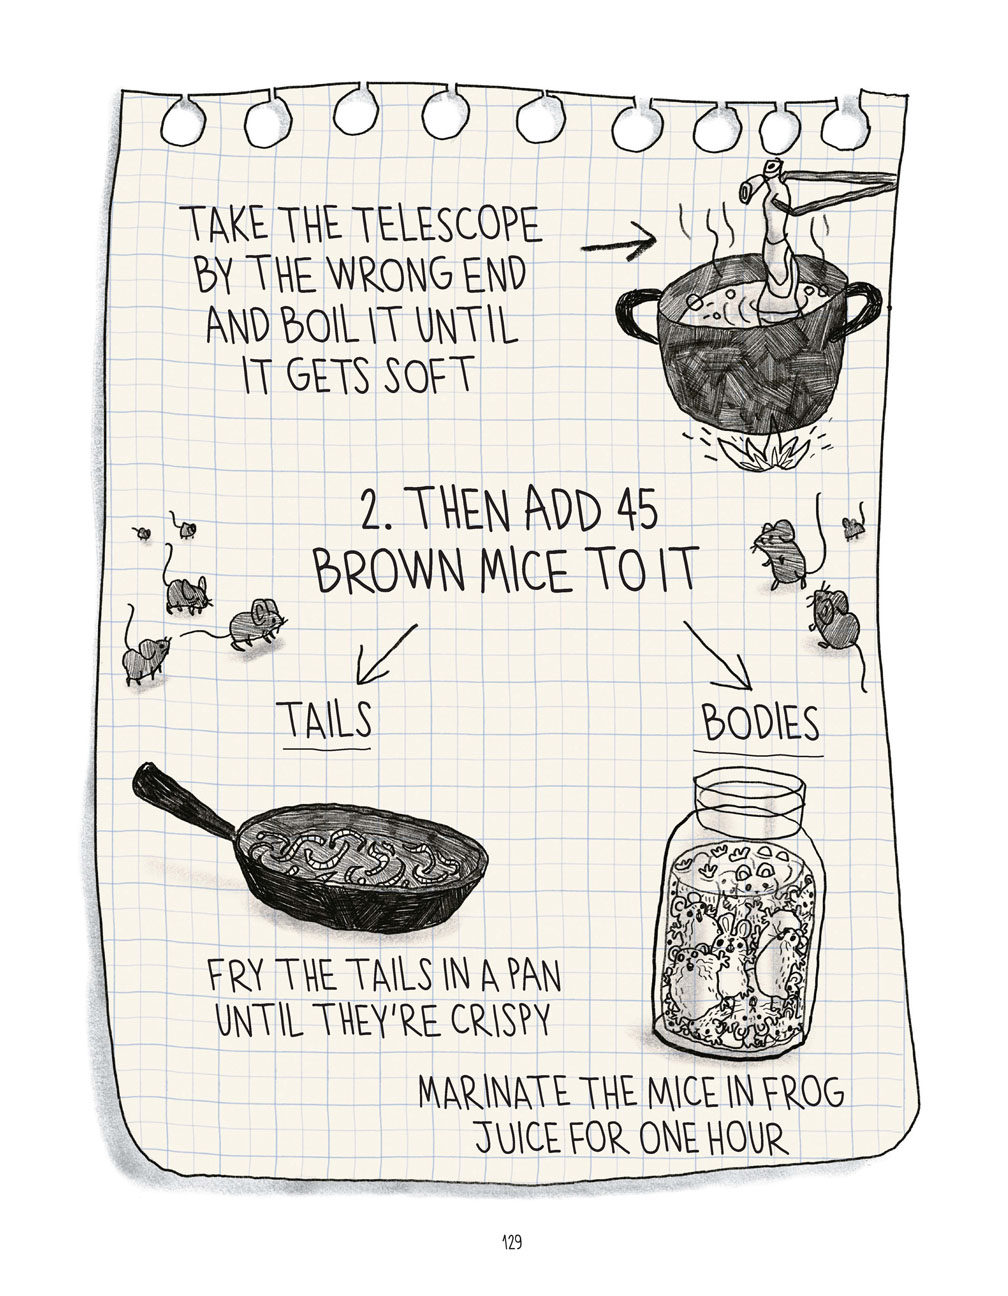 TAKE THE TELESCOPE
BY THE WRONG END
AND BOIL IT UNTIL
IT GETS SOFT
2. THEN ADD 45
BROWN MICE TO IT
TAILS
BODIES
FRY THE TAILS IN A PAN
UNTIL THEY'RE CRISPY
MARINATE THE MICE IN FROG
JUICE FOR ONE HOUR
129